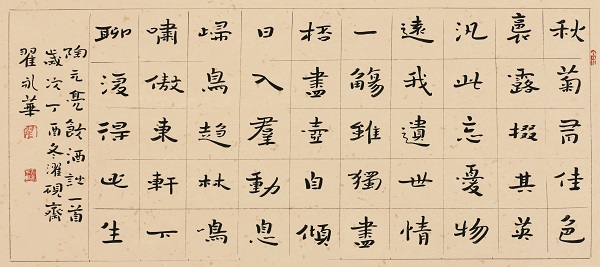 秋菊有佳色
裛露掇其英
汎此忘憂物
遠我遺世情
一觴雖獨盡
桮盡壺自傾
日入羣動息
歸鳥趨林鳴
嘯傲東軒下
聊復得此生
陶元亮飲酒詩一首
歲次丁酉冬濯硯齋
翟永華